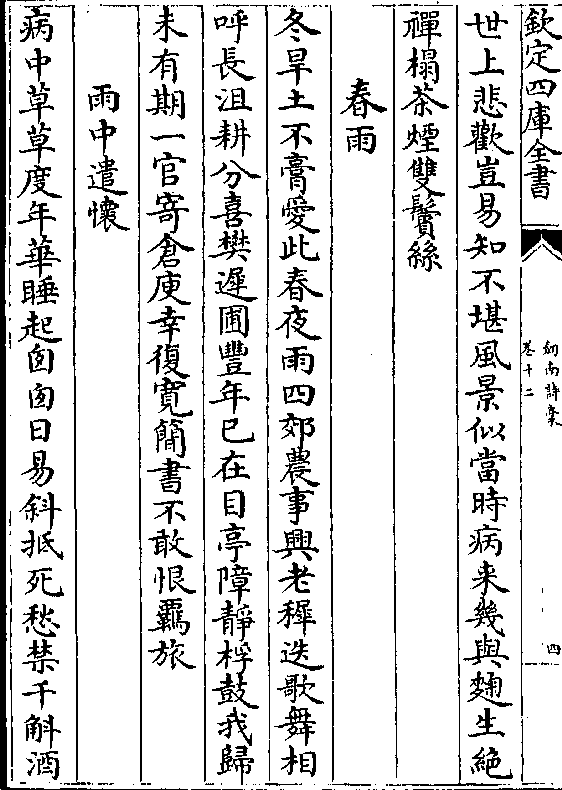 欽定四庫全書
劒南詩稾
卷十二
四
世上悲歡豈易知不堪風景似當時病来幾與麹生絶
禪榻茶煙雙鬢絲
春雨
冬旱土不膏愛此春夜雨四郊農事興老穉迭歌舞相
呼長沮耕分喜樊遲圃豐年已在目亭障靜桴鼓我歸
未有期一官寄倉庾幸復寛簡書不敢恨羈旅
雨中遣懷
病中草草度年華睡起囱囱日易斜抵死愁禁千斛酒